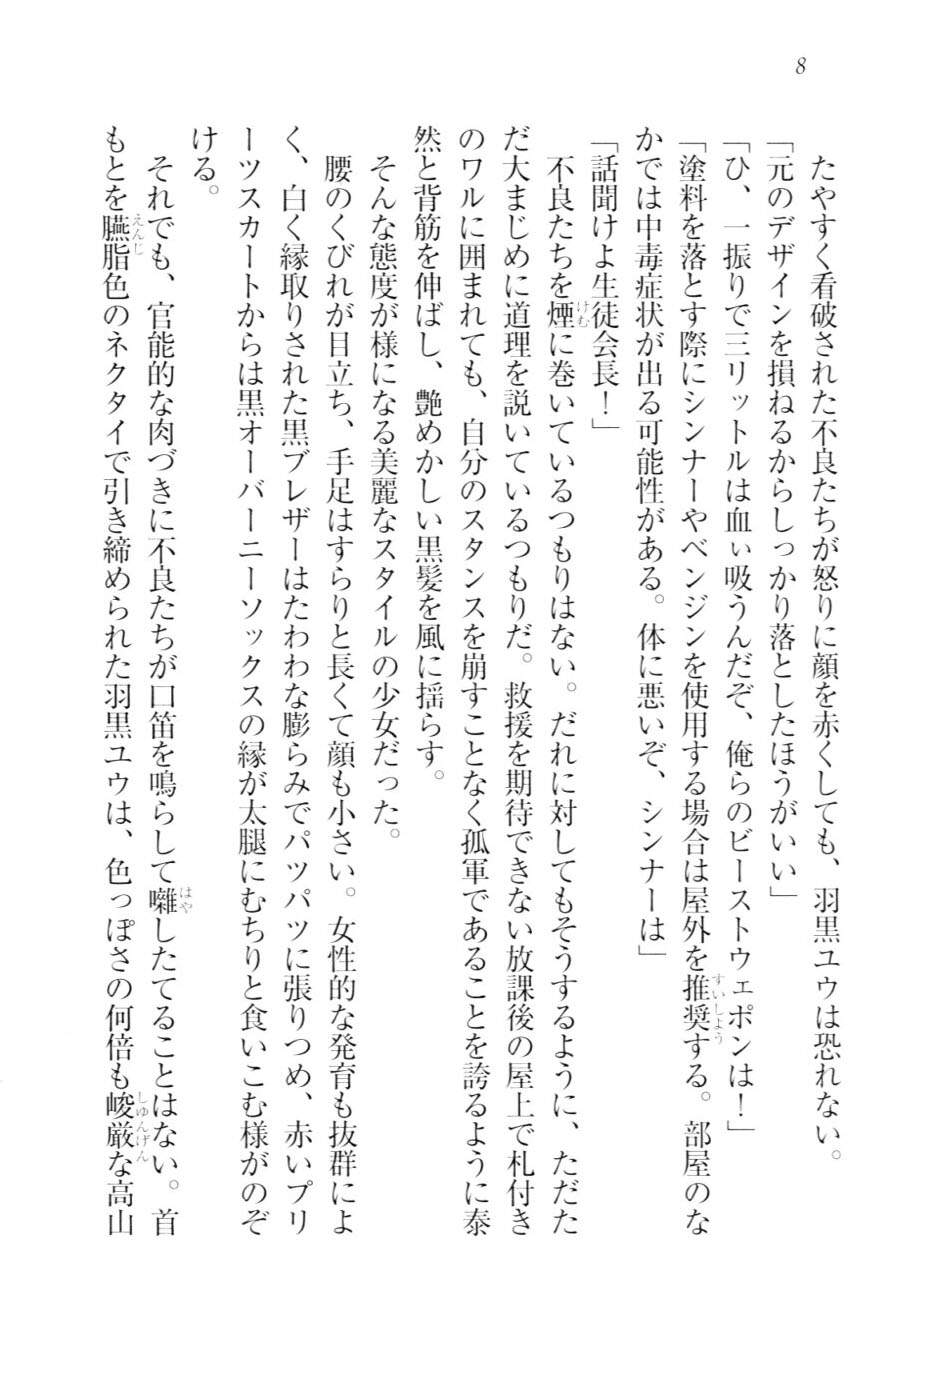 8
たやすく看破された不良たちが怒りに顔を赤くしても、羽黒ユウは恐れない。
「元のデザインを損ねるからしっかり落としたほうがいい」
「ひ、一振りで三リットルは血ぃ吸うんだぞ、俺らのビーストウェポンは！」
「塗料を落とす際にシンナーやベンジンを使用する場合は屋外を推奨する。部屋のな
かでは中毒症状が出る可能性がある。体に悪いぞ、シンナーは」
「話聞けよ生徒会長！」
不良たちを煙に巻いているつもりはない。だれに対してもそうするように、ただた
だ大まじめに道理を説いているつもりだ。救援を期待できない放課後の屋上で札付き
のワルに囲まれても、自分のスタンスを崩すことなく孤軍であることを誇るように泰
然と背筋を伸ばし、艶めかしい黒髪を風に揺らす。
そんな態度が様になる美麗なスタイルの少女だった。
腰のくびれが目立ち、手足はすらりと長くて顔も小さい。女性的な発育も抜群によ
く、白く縁取りされた黒ブレザーはたわわな膨らみでパツパツに張りつめ、赤いプリ
ーツスカートからは黒オーバーニーソックスの縁が太腿にむちりと食いこむ様がのぞ
ける。
それでも、官能的な肉づきに不良たちが口笛を鳴らして囃したてることはない。首
もとを臙脂色のネクタイで引き締められた羽黒ユウは、色っぽさの何倍も峻厳な高山